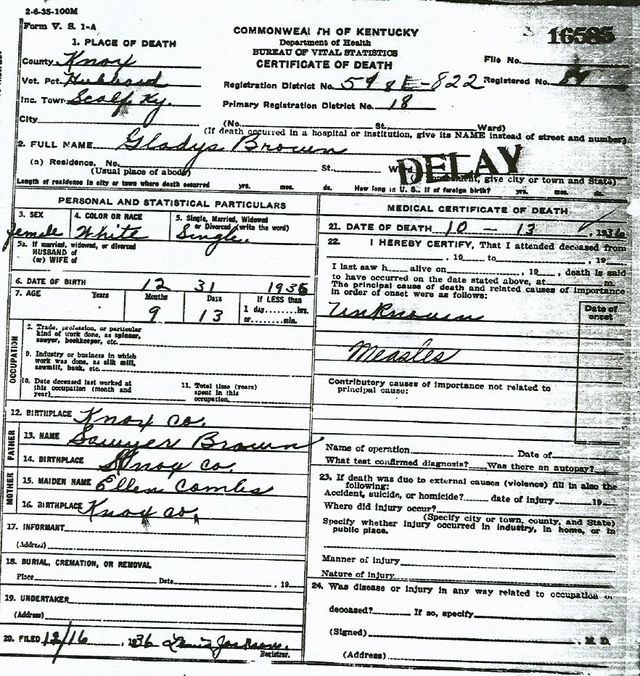 2-6-35-100M
Form V. S. 1-A
COMMONWEALTH OF KENTUCKY
Department of Health
BUREAU OF VITAL STATISTICS
CERTIFICATE OF DEATH
16585
1. PLACE OF DEATH
County Knox
Vot. Pct. Hubbard
Inc. Town Scalf Ky.
City
File No.
Registration District No. 598E-822 Registered No.
Primary Registration District No. 18
(No. St., Ward)
(If death occurred in a hospital or institution, give its NAME instead of street and number)
2. FULL NAME Gladys Brown
(a) Residence, No. St.,
DELAY
(Usual place of abode) give city or town and State)
Length of residence in city or town where death occurred yrs. mos. ds. How long in U. S., if of foreign birth? yrs. mos. ds.
PERSONAL AND STATISTICAL PARTICULARS
3. SEX
female
4. COLOR OR RACE
White
5. Single, Married, Widowed
or Divorced (write the word)
Single
5a. If married, widowed, or divorced
HUSBAND of
(or) WIFE of
6. DATE OF BIRTH 12 31 1935
7. AGE Years Months Days If LESS than
9 13 1 day......hrs.
or......min.
OCCUPATION
8. Trade, profession, or particular
kind of work done, as spinner,
sawyer, bookkeeper, etc.
9. Industry or business in which
work was done, as silk mill,
sawmill, bank, etc.
10. Date deceased last worked at
this occupation (month and
year)
11. Total time (years)
spent in this
occupation
12. BIRTHPLACE Knox co.
FATHER
13. NAME Sawyer Brown
14. BIRTHPLACE Knox co.
MOTHER
15. MAIDEN NAME Ellen Combs
16. BIRTHPLACE Knox co.
17. INFORMANT
(Address)
18. BURIAL, CREMATION, OR REMOVAL
Place Date , 19
19. UNDERTAKER
(Address)
20. FILED 12/16, 1936
Registrar.
MEDICAL CERTIFICATE OF DEATH
21. DATE OF DEATH 10 - 13 , 1936
22. I HEREBY CERTIFY, That I attended deceased from
, 19 to , 19
I last saw h alive on , 19 , death is said
to have occurred on the date stated above, at m.
The principal cause of death and related causes of importance
in order of onset were as follows:
Date of
onset
Unknown
Measles
Contributory causes of importance not related to
principal cause:
Name of operation Date of
What test confirmed diagnosis? Was there an autopsy?
23. If death was due to external causes (violence) fill in also the
following:
Accident, suicide, or homicide? date of injury 19
Where did injury occur?
(Specify city or town, county, and State)
Specify whether injury occurred in industry, in home, or in
public place.
Manner of injury
Nature of injury
24. Was disease or injury in any way related to occupation of
deceased? If so, specify
(Signed) M. D.
(Address)